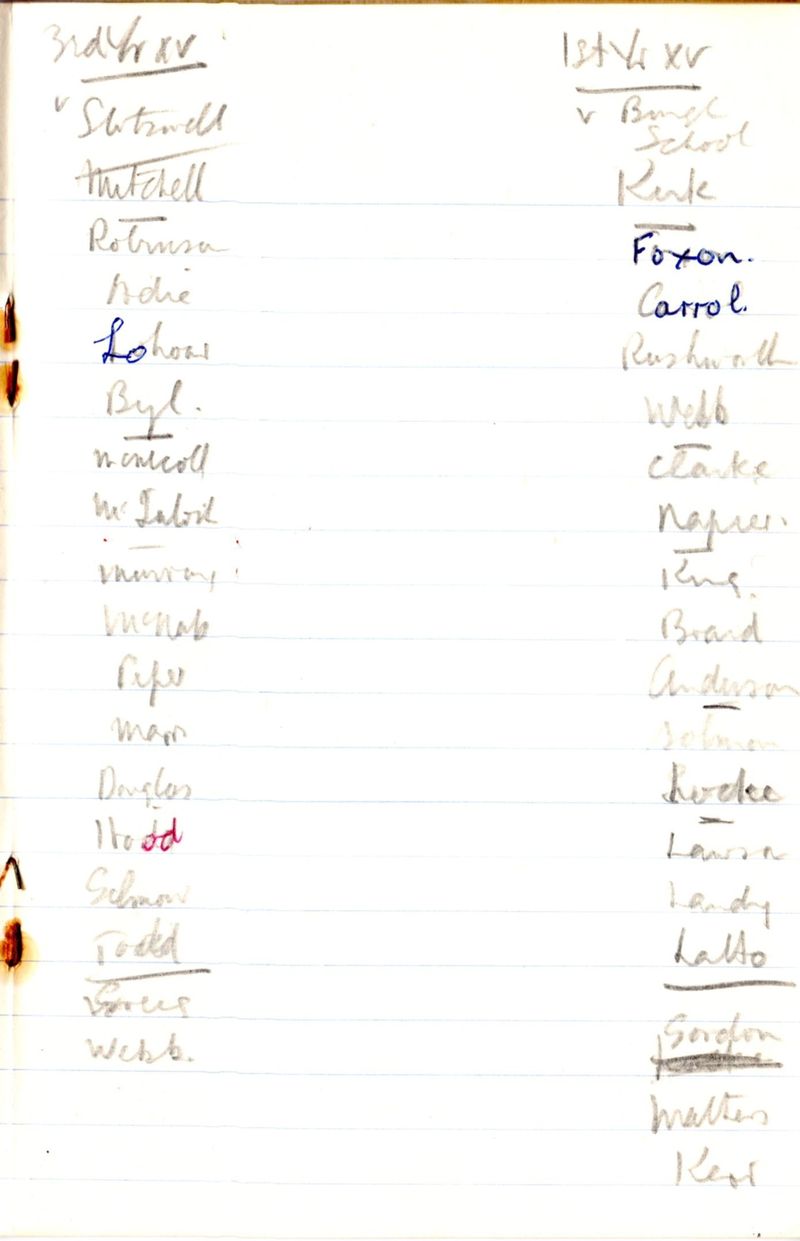 3rd Yr XV
v
Mitchell
Robinson
Adie
Lohoar
Byl.
McNicoll
McIntosh
Murray
McNab
Piper
Marr
Douglas
Hodd
Todd
Webb.
1st Yr XV
v
School
Kerk
Foxon.
Carrol.
Rushworth
Webb
Clarke
Napier.
King
Brand
Anderson
Solomon
Lawson
Landy
Latto
Gordon
Matters
Kerr